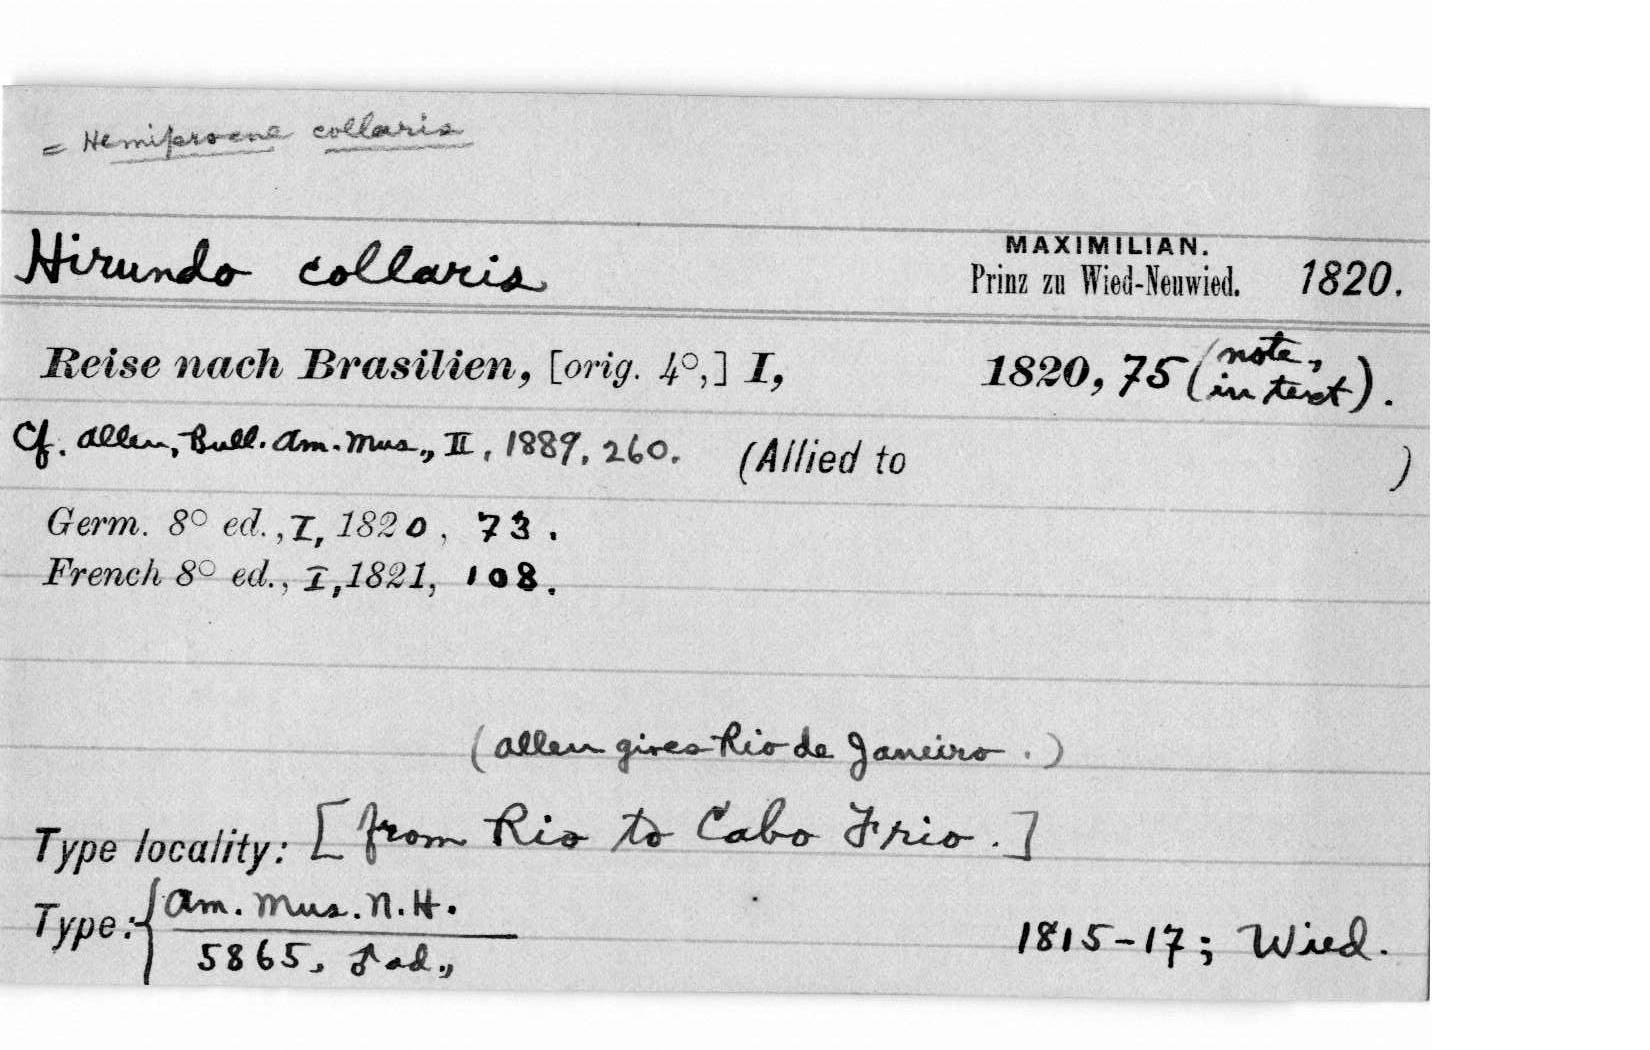 = Hemiprocne collaris
MAXIMILIAN.
Hirundo collaris Prinz zu Wied-Neuwied. 1820.
Reise nach Brasilien, [orig. 4°,] I, 1820, 75 (note, in text).
Cf. Allen, Bull. Am. Mus., II, 1889, 260. (Allied to )
Germ. 8° ed., I, 1820, 73.
French 8° ed., I, 1821, 108.
(Allen gives Rio de Janeiro.)
Type locality: [from Rio to Cabo Frio.]
Type: { Am. Mus. N. H.
5865, ♂ ad., 1815-17; Wied.